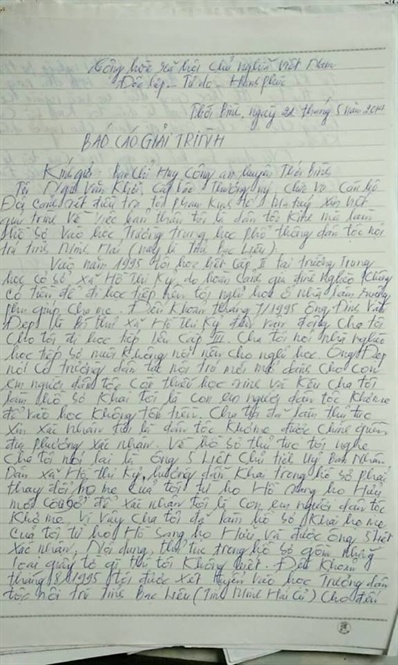 Cộng hòa xã hội chủ nghĩa Việt Nam
Độc lập - Tự do - Hạnh phúc
Thới Bình, ngày 22 tháng 5 năm
BÁO CÁO GIẢI TRÌNH
Kính gửi: Ban Chỉ Huy Công an huyện Thới Bình
Tôi Ngô Văn Khởi, cấp bậc Thượng úy chức vụ Cán bộ
Đội cảnh sát điều tra tội phạm Kinh tế Ma túy xin viết
quá trình về việc bản thân tôi là dân tộc Kinh mà làm
hồ sơ vào học trường trung học phổ thông dân tộc nội
trú tỉnh Minh Hải (nay là tỉnh Bạc Liêu).
Vào năm 1995 tôi học hết cấp II tại trường Trung
học cơ sở xã Hồ Thị Kỷ, do hoàn cảnh gia đình nghèo không
có tiền để đi học tiếp nên tôi nghỉ học ở nhà làm ruộng
phụ giúp cha mẹ. Đến khoảng tháng 7/1995 ông Đinh Văn
Đẹp là Bí thư xã Hồ Thị Kỷ đến vận động cha tôi
cho tôi đi học tiếp lên cấp III. Cha tôi nói nhà nghèo
học tiếp sợ nuôi không nổi nên cho nghỉ học. Ông Đẹp
nói có trường dân tộc nội trú mới mở dành cho con
em người dân tộc còn thiếu học sinh và kêu cha tôi
làm hồ sơ khai tôi là con em người dân tộc Khơme
để vào học không tốn tiền. Cha tôi đã làm thủ tục
xin xác nhận tôi là dân tộc Khơme được chính quyền
địa phương xác nhận. Về hồ sơ thủ tục tôi nghe
cha tôi nói lại là ông 5 Liệt Chủ tịch Uỷ Ban Nhân
Dân xã Hồ Thị Kỷ, hướng dẫn khai trong hồ sơ phải
thay đổi họ mẹ của tôi từ họ Hồ sang họ Hữu
mới có cơ sở để xác nhận tôi là con em người dân tộc
Khơ me. Vì vậy cha tôi đã làm hồ sơ khai họ mẹ
của tôi từ họ Hồ sang họ Hữu và được ông 5 Liệt
xác nhận. Nội dung, thủ tục trong hồ sơ gồm những
loại giấy tờ gì thì tôi không biết. Đến khoảng
tháng 8/1995 tôi được xét tuyển vào học trường dân
tộc nội trú tỉnh Bạc Liêu (Tỉnh Minh Hải cũ) cho đến